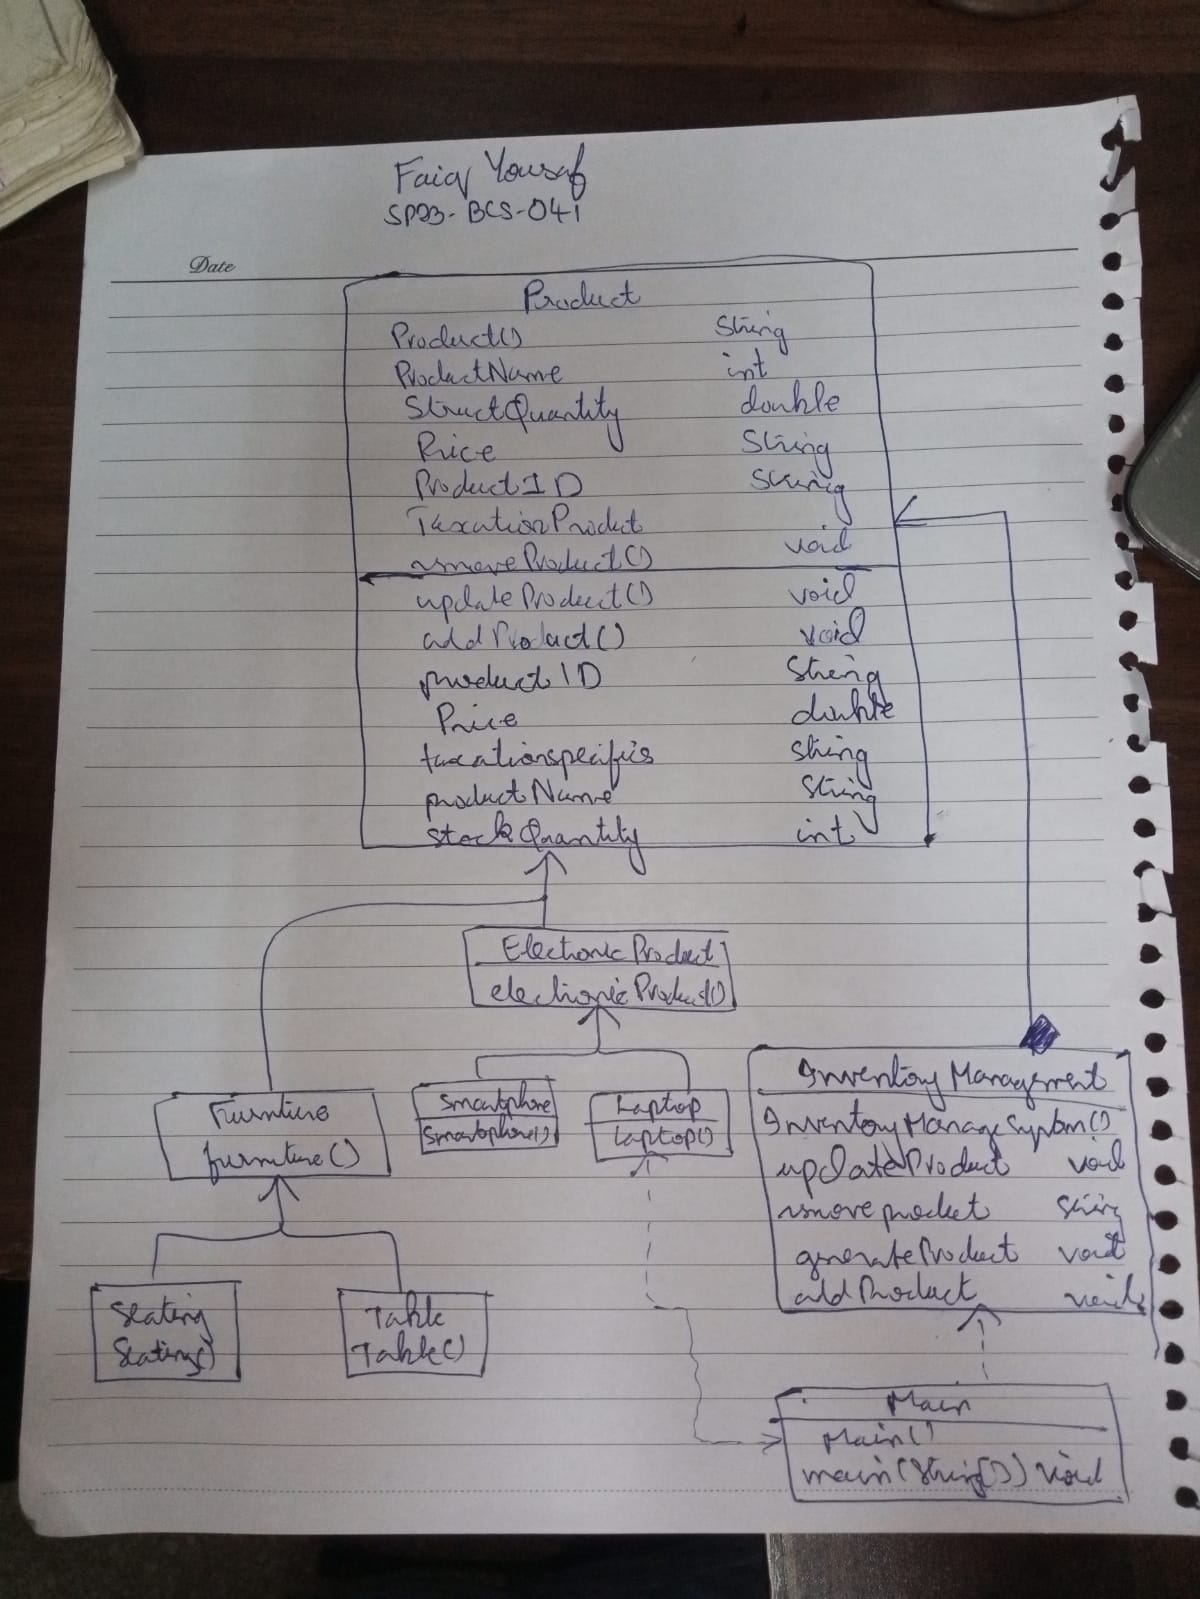 Faiq Yousaf
SP23-BCS-041
Date
Product
Product() String
ProductName int
StructQuantity double
Price String
ProductID String
TaxationProduct
removeProduct() void
updateProduct() void
addProduct() void
productID String
Price double
taxationspecifics string
productName String
stockQuantity int
ElectronicProduct
electronicProduct()
Furniture
furniture()
Smartphone
Smartphone()
Laptop
Laptop()
Inventory Management
InventoryManageSystem()
updateProduct void
remove product String
generateProduct void
addProduct void
Seating
Seating()
Table
Table()
Main
Main()
main(String[]) void